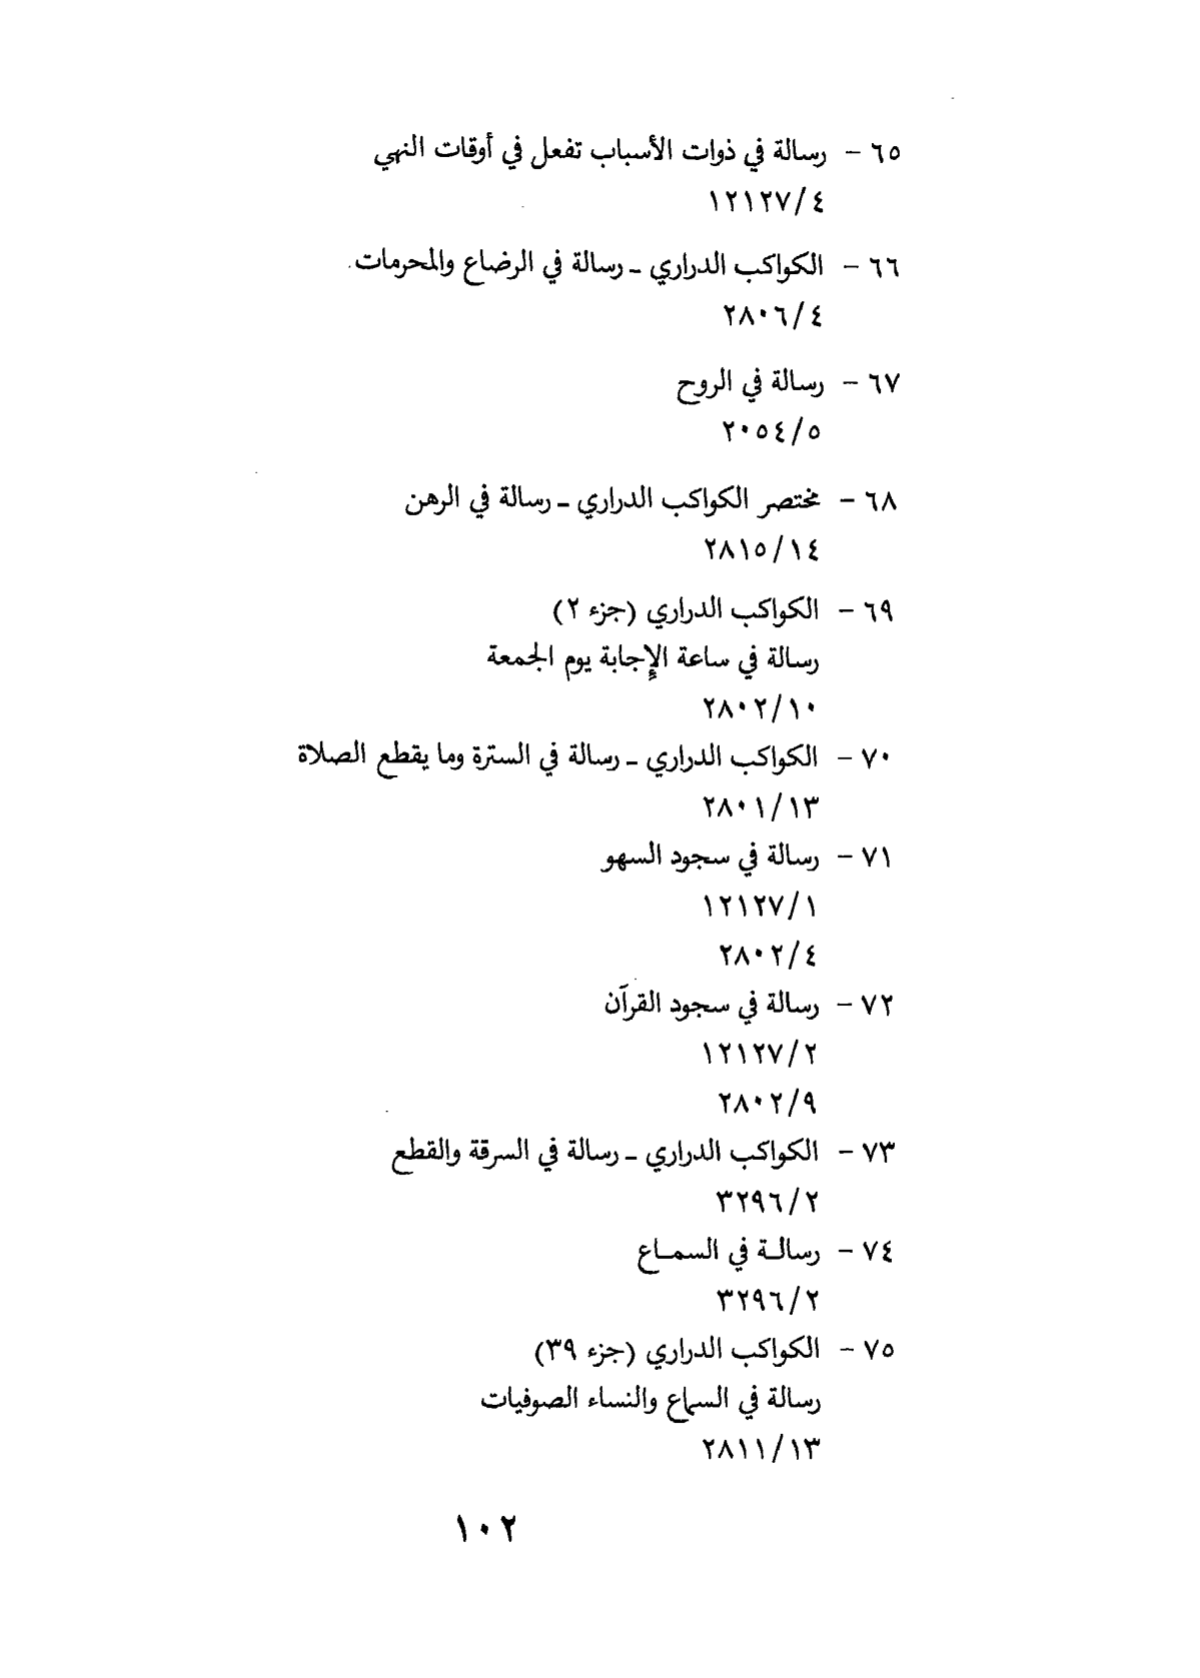 ٦٥ - رسالة في ذوات الأسباب تفعل في أوقات النهي
١٢١٢٧/٤
٦٦ - الكواكب الدراري - رسالة في الرضاع والمحرمات.
٢٨٠٦/٤
٦٧ - رسالة في الروح
٢٠٥٤/٥
٦٨ - مختصر الكواكب الدراري - رسالة في الرهن
٢٨١٥/١٤
٦٩ - الكواكب الدراري (جزء ٢)
رسالة في ساعة الإجابة يوم الجمعة
٢٨٠٢/١٠
٧٠ - الكواكب الدراري - رسالة في السترة وما يقطع الصلاة
٢٨٠١/١٣
٧١ - رسالة في سجود السهو
١٢١٢٧/١
٢٨٠٢/٤
٧٢ - رسالة في سجود القرآن
١٢١٢٧/٢
٢٨٠٢/٩
٧٣ - الكواكب الدراري - رسالة في السرقة والقطع
٣٢٩٦/٢
٧٤ - رسالـة في السمـاع
٣٢٩٦/٢
٧٥ - الكواكب الدراري (جزء ٣٩)
رسالة في السماع والنساء الصوفيات
٢٨١١/١٣
١٠٢